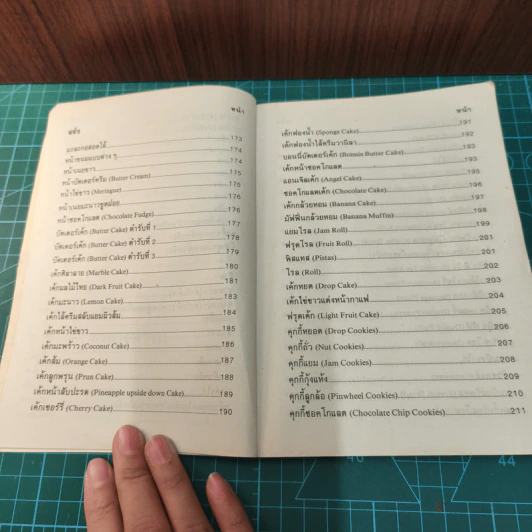 หน้า
มะละกอสอดไส้ 173
หน้าขนมแบบต่าง ๆ 174
หน้าเนยขาว 174
หน้าบัตเตอร์ครีม (Butter Cream) 175
หน้าไข่ขาว (Meringue) 175
หน้าเนยมะนาวชูดฝอย 176
หน้าชอคโกแลต (Chocolate Fudge) 176
บัตเตอร์เค้ก (Butter Cake) ตำรับที่ 1 177
บัตเตอร์เค้ก (Butter Cake) ตำรับที่ 2 178
บัตเตอร์เค้ก (Butter Cake) ตำรับที่ 3 179
เค้กศิลาลาย (Marble Cake) 180
เค้กผลไม้ไทย (Dark Fruit Cake) 181
เค้กมะนาว (Lemon Cake) 183
เค้กไส้ครีมสลับแยมผิวส้ม 184
เค้กหน้าไข่ขาว 185
เค้กมะพร้าว (Coconut Cake) 186
เค้กส้ม (Orange Cake) 187
เค้กลูกพรุน (Prun Cake) 188
เค้กหน้าสับปะรด (Pineapple upside down Cake) 189
เค้กเชอร์รี่ (Cherry Cake) 190
หน้า
เค้กฟองน้ำ (Sponge Cake) 191
เค้กฟองน้ำไส้ครีมวานิลา 192
บอนนี่บัตเตอร์เค้ก (Bonnie Butter Cake) 193
เค้กหน้าชอคโกแลต 193
แอนเจิลเค้ก (Angel Cake) 195
ชอคโกแลตเค้ก (Chocolate Cake) 196
เค้กกล้วยหอม (Banana Cake) 197
มัฟฟินกล้วยหอม (Banana Muffin) 198
แยมโรล (Jam Roll) 199
ฟรุตโรล (Fruit Roll) 201
พิสแทส (Pistas) 201
โรล (Roll) 202
เค้กหยด (Drop Cake) 203
เค้กไข่ขาวแต่งหน้ากาแฟ 204
ฟรุตเค้ก (Light Fruit Cake) 205
คุกกี้หยอด (Drop Cookies) 206
คุกกี้ถั่ว (Nut Cookies) 207
คุกกี้แยม (Jam Cookies) 208
คุกกี้กุ้งแห้ง 209
คุกกี้ลูกล้อ (Pinwheel Cookies) 210
คุกกี้ชอคโกแลต (Chocolate Chip Cookies) 211
44